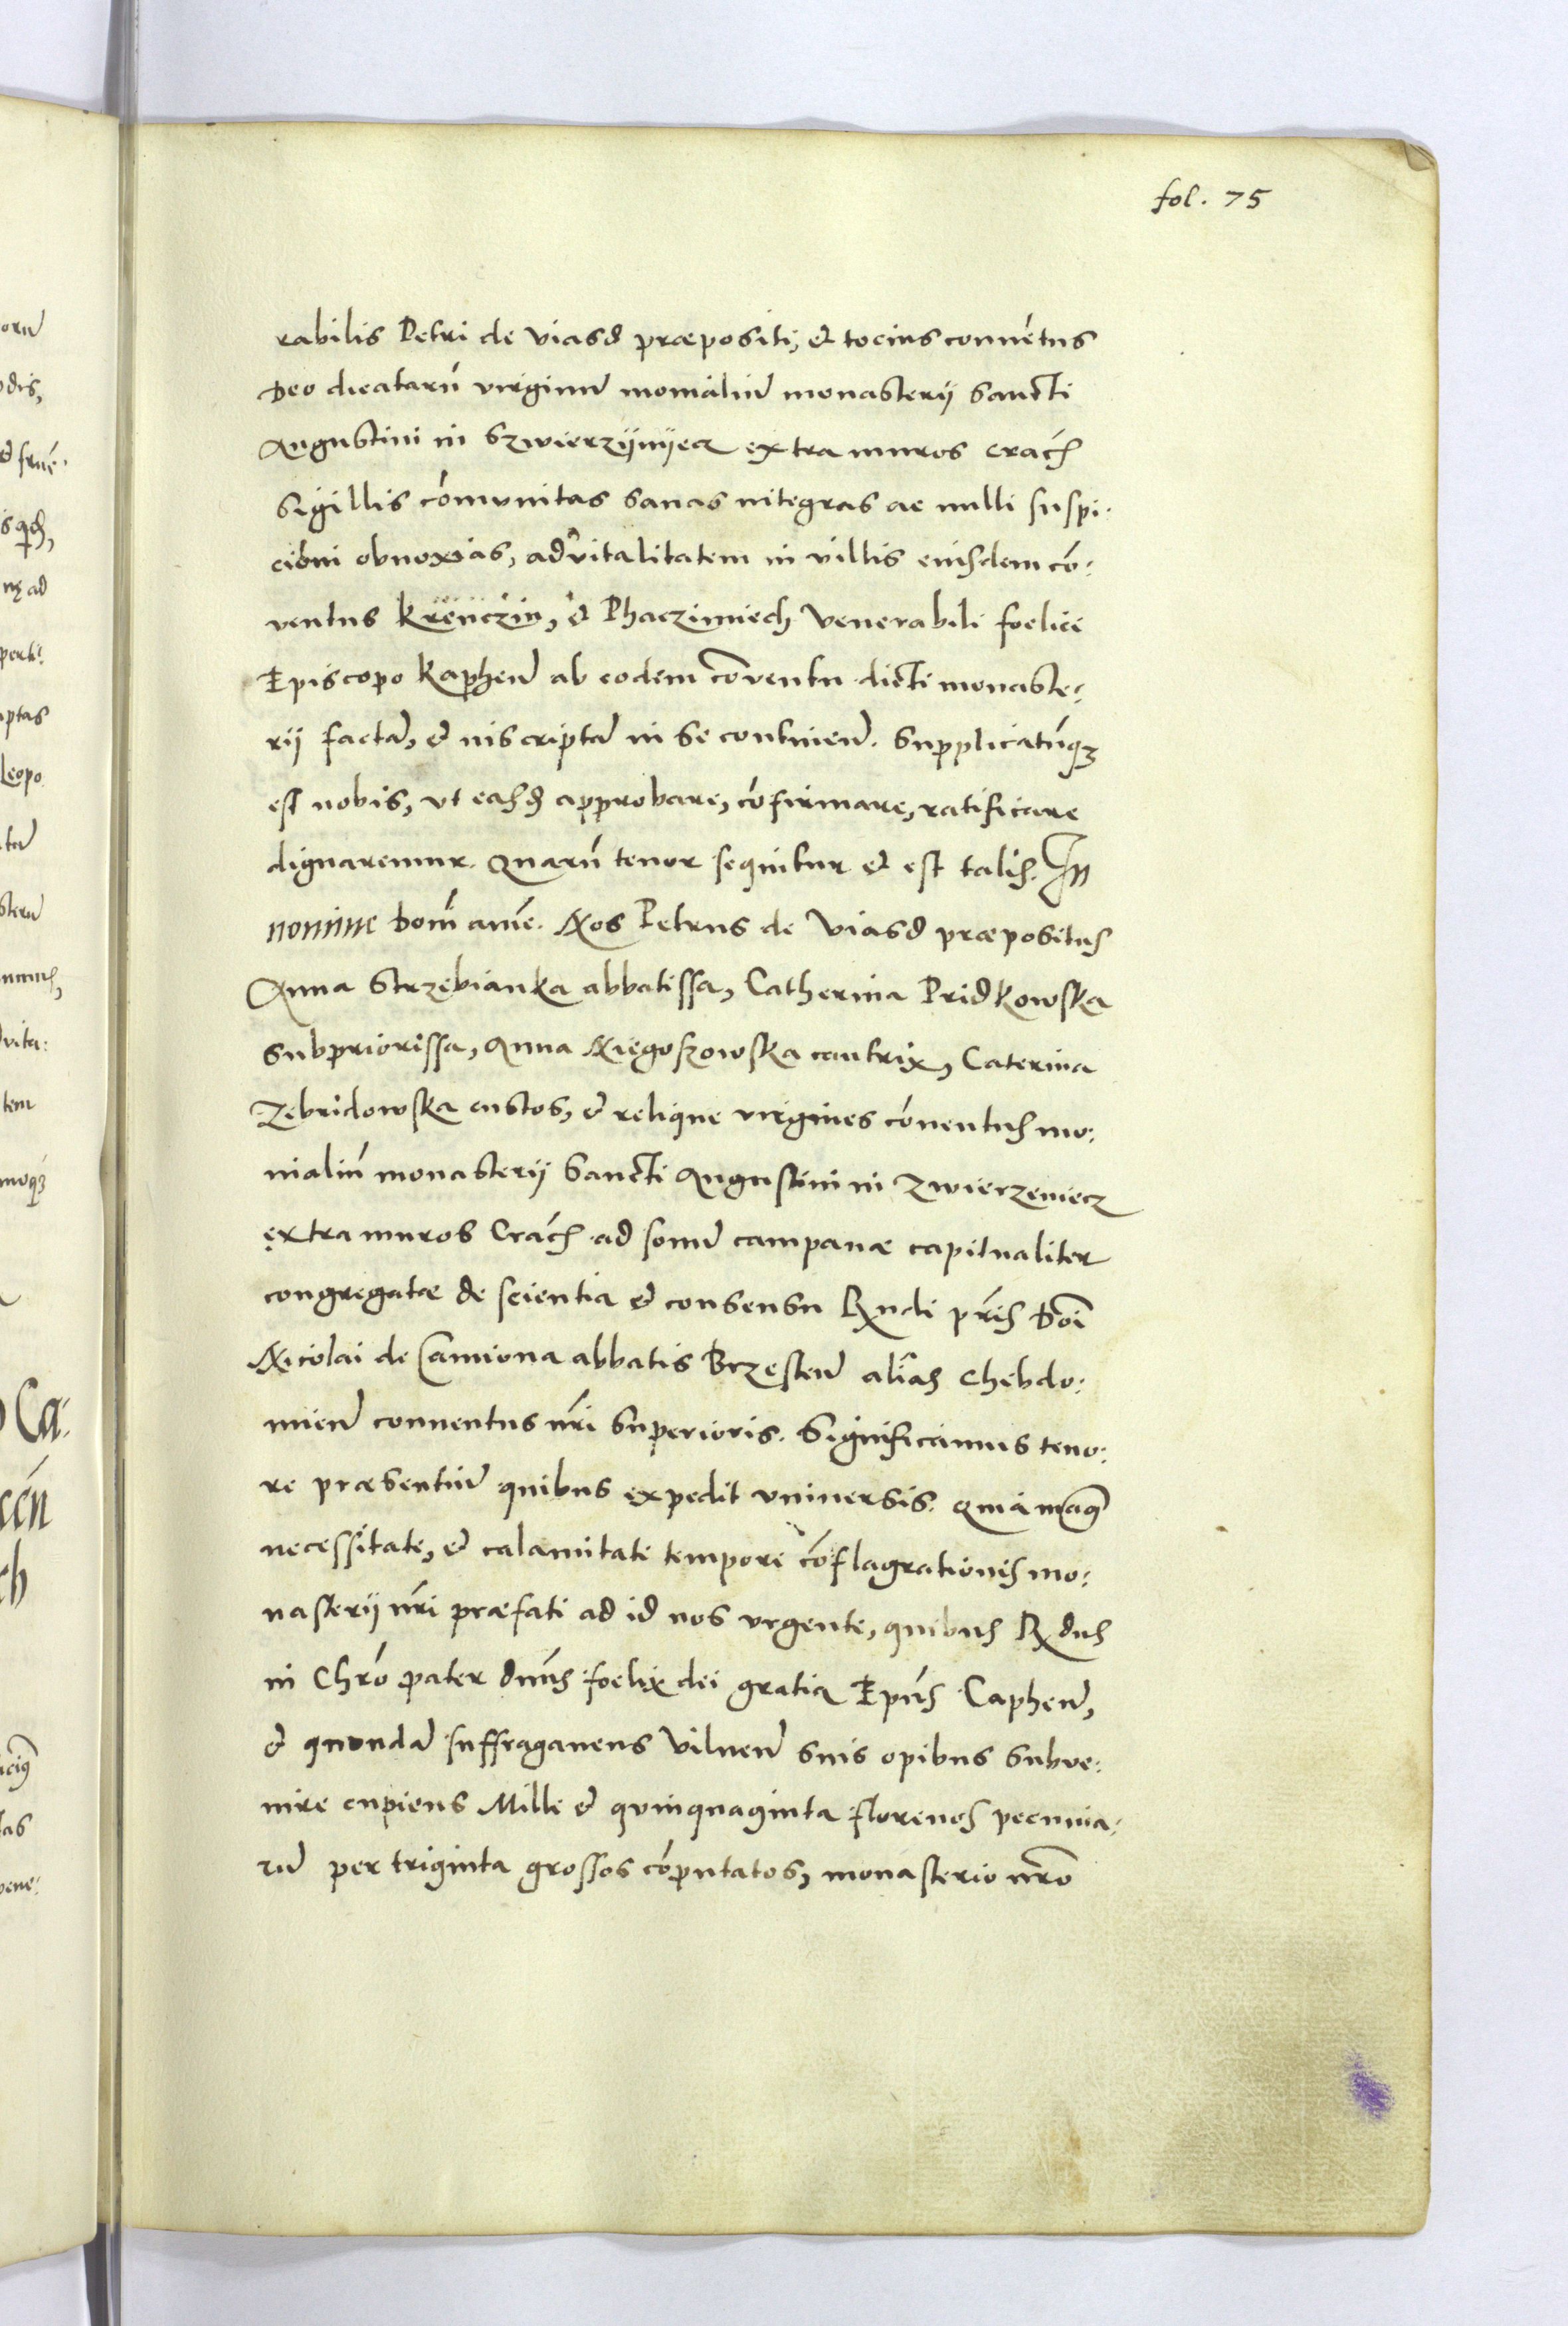 fol. 75
rabilis Petri de Viasd præpositi, & tocius convētus
Deo dicatarū virginum monialium monasterij Sancti
Augustini in Szwierzÿnÿecz extra muros Cracń
Sigillis comunitas sanas integras ac nulli suspi:
cioni obnoxias, advitalitatem in villis eiusdem cō:
ventus Krenczin, & Phaczimiech Venerabili foelici
Episcopo Kaphen̄ ab eodem cōventu dicti monaste:
rij factam, & inscriptam in se continen̄. Supplicatūqȝ
est nobis, vt easd approbare, cōfirmare, ratificare
dignaremur. Quarū tenor sequitur & est talis. In
nomine Domī amē. Nos Petrus de Viasd præpositus
Anna Strzębianka abbatissa, Catherina Pridkowska
subpriorissa, Anna Niegoszowska cantrix, Caterina
Zebridowska custos, & relique virgines cōventus mo:
nialiū monasterij Sancti Augustini in Zwierzeniecz
extra muros Cracń ad sonum campanæ capitualiter
congregatæ de scientia & consensu Rndi pr̄is Doī
Nicolai de Camiona abbatis Brzesten̄ alīas Chebdo:
mien̄ conventus nr̄i Superioris. Significamus teno:
re præsentium quibus expedit vniversis. Quia magͣ
necessitate, & calamitate tempore cōflagrationis mo:
nasterij nr̄i præfati ad id nos vrgente, quibus R dus
in Chrō pater dn̄us foelix dei gratia Epūs Caphen̄,
& quondam suffraganeus Vilnen̄ suis opibus subve:
nire cupiens Mille & quinquaginta florenos pecunia:
rum per triginta grossos cōputatos, monasterio nr̄o